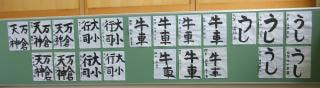 万倉
天神
万倉
天神
万倉
天神
大小
行司
大小
行司
牛車
牛車
牛車
牛車
うし
うし
うし
万倉
天神
万倉
天神
大小
行司
大小
行司
牛車
牛車
牛車
うし
うし